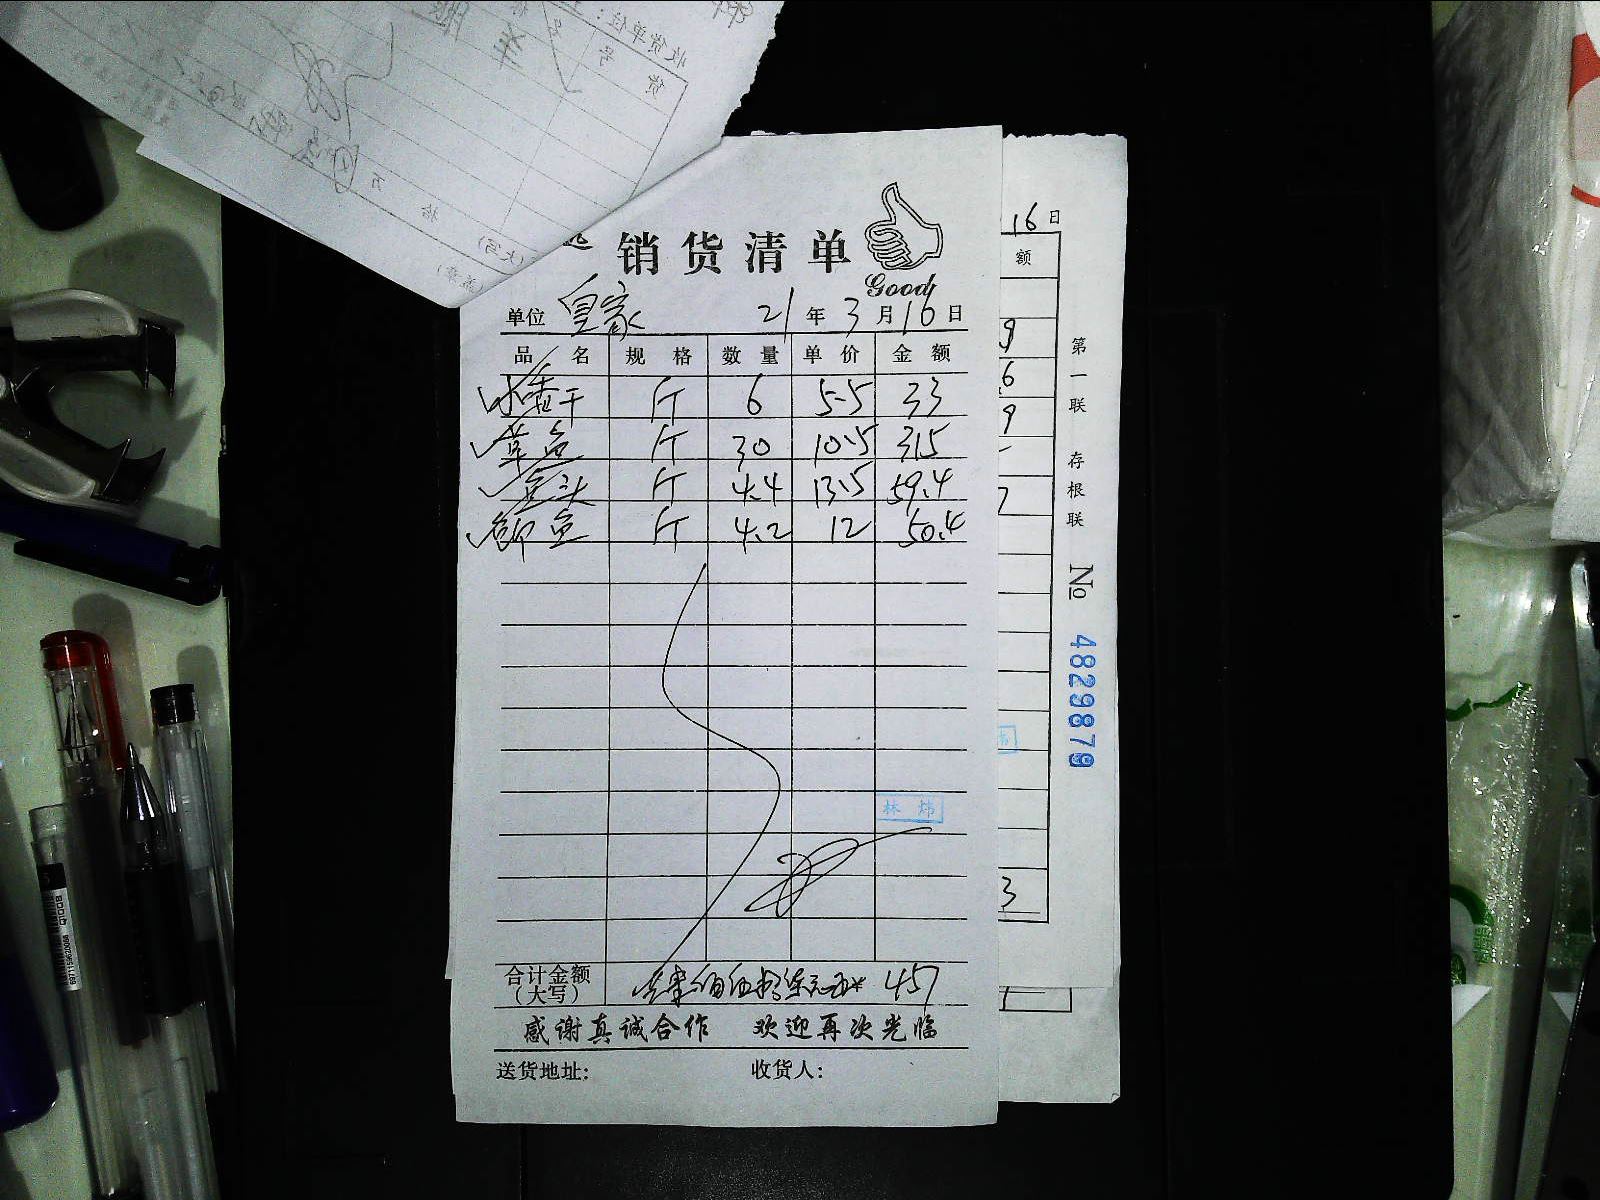 收货单位:
号
货
(大写)
(盖章)
销货清单
Good
单位 皇家 21年3月16日
品名 规格 数量 单价 金额
水香干 斤 6 5.5 33
草鱼 斤 30 10.5 315
鱼头 斤 4.4 13.5 59.4
鳊鱼 斤 4.2 12 50.4
林炜
合计金额
(大写) 457
感谢真诚合作 欢迎再次光临
送货地址: 收货人:
16日
额
9
6
9
7
3
第一联 存根联 № 4829879